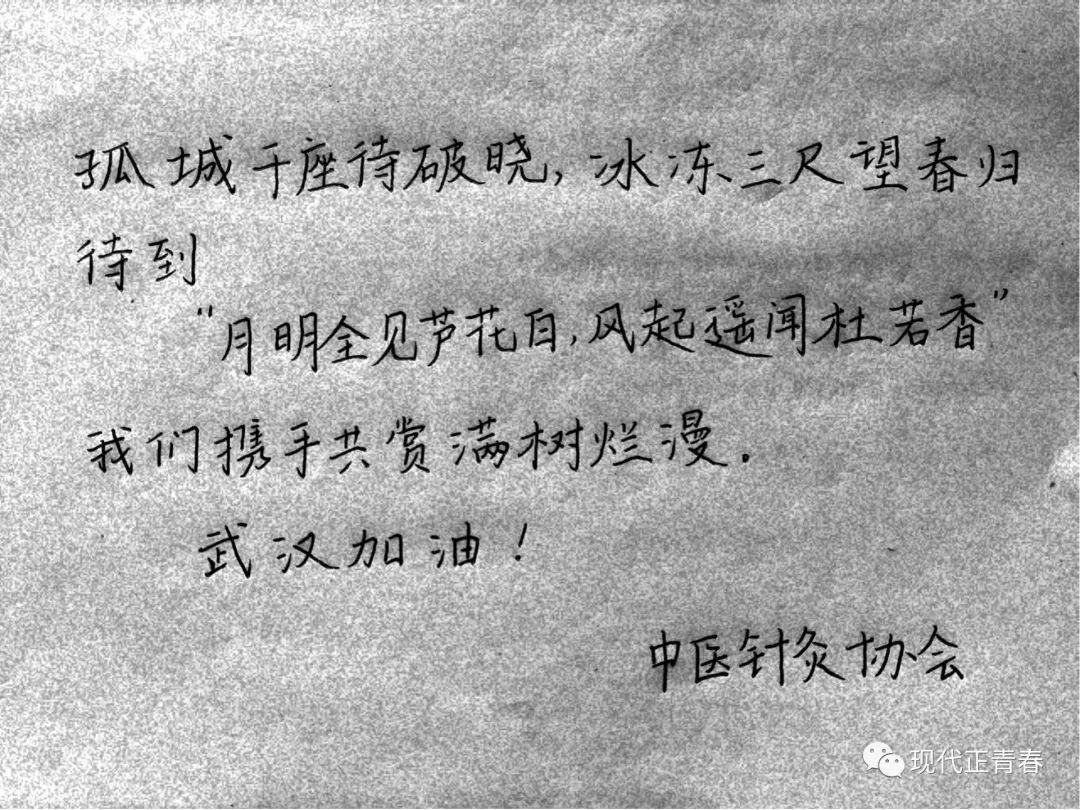 孤城千座待破晓，冰冻三尺望春归
待到
“月明全见芦花白，风起遥闻杜若香”
我们携手共赏满树烂漫．
武汉加油！
中医针灸协会
现代正青春